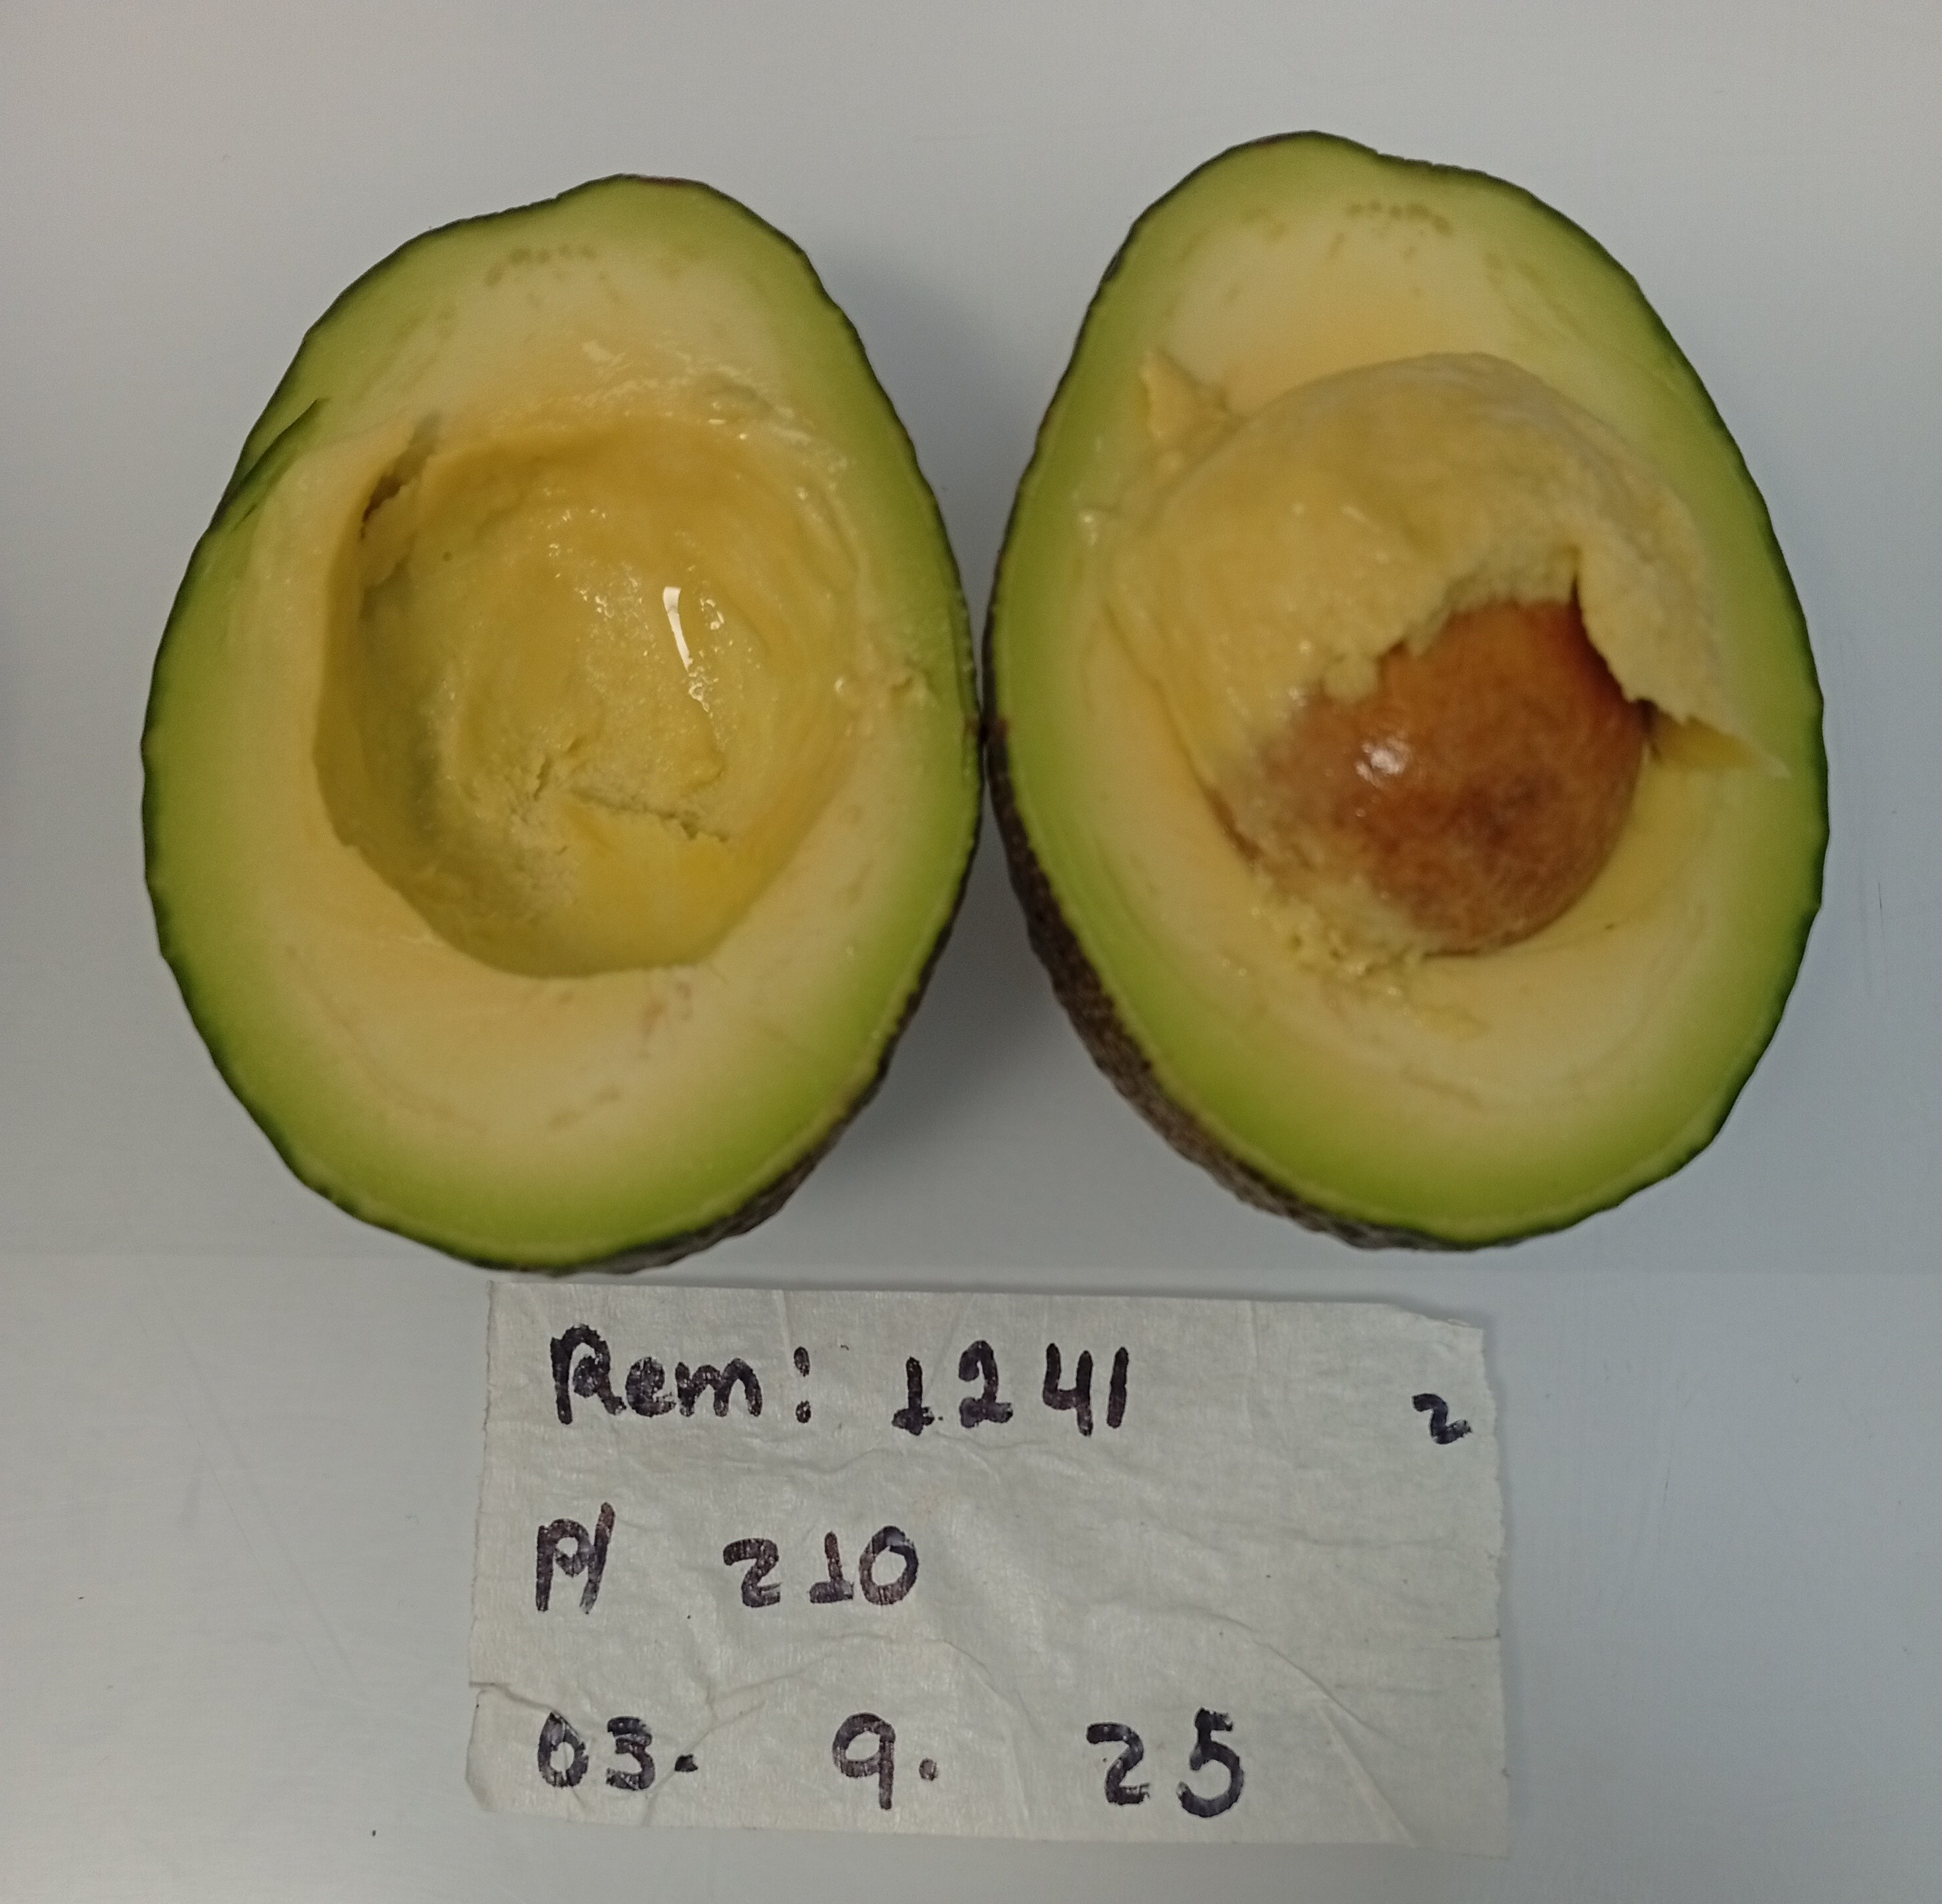 Rem: 1241 2
P/ 210
03. 9. 25